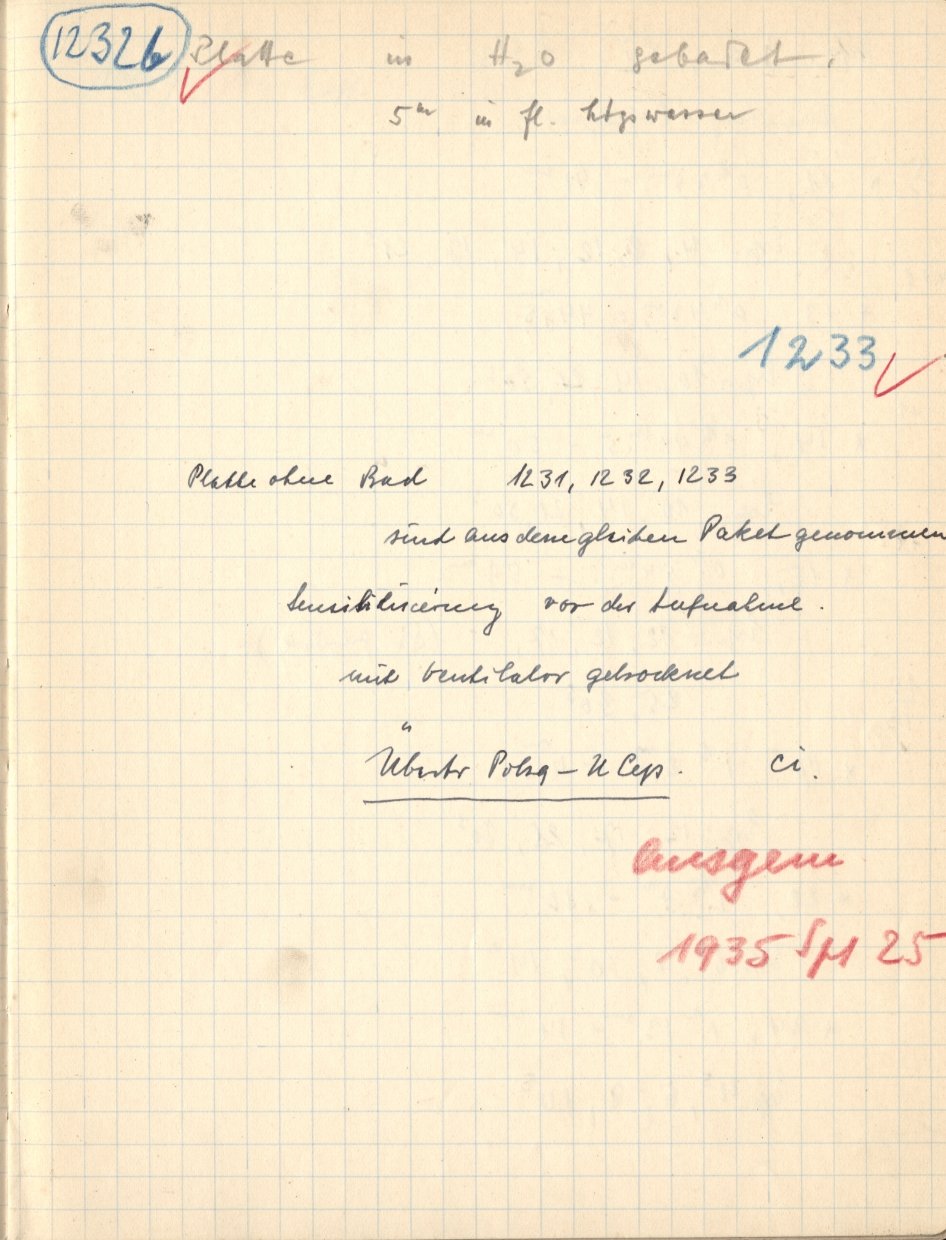 1232b Platte in H₂O gebadet.
5ᵐ in fl. Ltgswasser
1233
Platte ohne Bad 1231, 1232, 1233
sind aus dem gleichen Paket genommen
Sensibilisierung vor der Aufnahme.
mit Ventilator getrocknet
Ausgem
1935 Spt 25